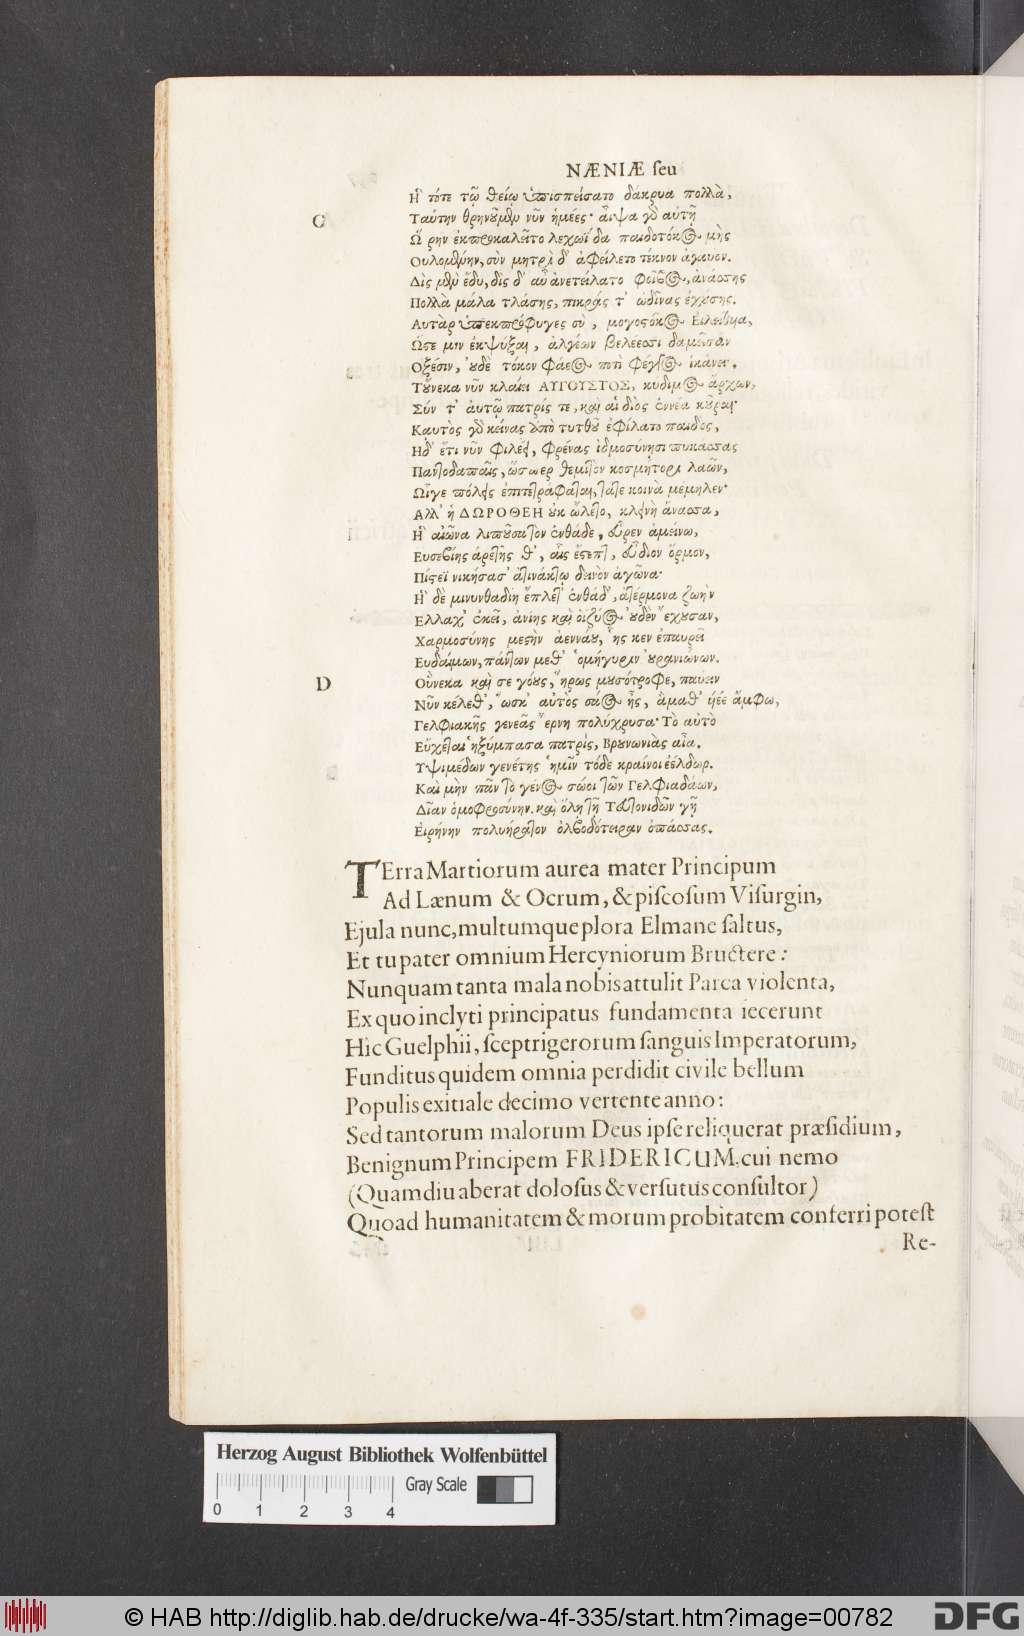 NÆNIÆ ſeu
Ἣ τότε τῷ θείῳ ἐπισπείσατο δάκρυα πολλὰ,
C
Ταύτην θρηνοῦμεν νῦν ἡμέες· αἶψα γὰρ αὐτὴ
Ουλομένην, σὺν μητρὶ δ' ἀφείλετο τέκνον ἀγαυόν.
Δὶς μὲν ἔδυ, δὶς δ' αὖ ἀνετείλατο Φοῖβος, ἀνάσσης
Πολλὰ μάλα τλάσης, πικρὰς τ' ὠδῖνας ἐχούσης.
Αυτὰρ ὑπεκπρόφυγες σὺ, μογοςόκος Εἰλείθυια,
Ὥςε μιν ἐκψύξαι, ἀλγέων βελέεσσι δαμεῖσαν
Οξέσιν, οὐδὲ τόκον φάεος ποτὶ φέγγος ἱκάνει.
Τοὔνεκα νῦν κλαίει ΑΥΓΟΥΣΤΟΣ, κυδιμος ἄρχων,
Σύν τ' ἀυτῷ πατρίς τε, καὶ αἱ διὸς ἐννέα κοῦραι·
Καυτὸς γὰρ κείνας ὑπὸ τυτθοῦ ἐφίλατο παιδὸς,
Ηδ' ἔτι νῦν φιλέει, φρένας ἰδμοσύνησι πυκάσσας
Παντοδαπαῖς, ὥσπερ θεμιτὸν κοσμήτορι λαῶν,
Ὧιγε πόληες ἐπιτετράφαται, τάτε κοινὰ μέμηλεν·
Αλλ' ἡ ΔΩΡΟΘΕΗ οὐκ ὤλετο, κλεινὴ ἄνασσα,
Ἣ αἰῶνα λιποῦσα τὸν ἐνθάδε, εὗρεν ἀμείνω,
Ευσεβίης ἀρετῆς θ', αἷς ἕσπετ', εὔδιον ὅρμον,
Πίςεϊ νικήσασ' ἀτινάκτῳ δεινὸν ἀγῶνα·
Ἣ δὲ μινυνθαδίη ἔπλετ' ἐνθάδ', ἀτέρμονα ζωὴν
Ελλαχ' ἐκεῖ, ἀνίης καὶ ὀϊζύος οὐδὲν ἔχουσαν,
Χαρμοσύνης μεςὴν ἀεννάου, ἧς κεν ἐπαυρεῖ
Ευδαίμων, πάντων μεθ' ὁμήγυριν οὐρανιώνων.
D
Οὕνεκα καὶ σε γόους, ἥρως μουσότροφε, παύειν
Νῦν κέλεθ', ὥσκ' αὐτὸς σάος ἦς, ἅμαθ' ὑέε ἄμφω,
Γελφιακῆς γενεᾶς ἔρνη πολύχρυσα· Τὸ αὐτὸ
Εὔχεται ἡ ξύμπασα πατρὶς, Βρουνωνιὰς αἶα.
Υψιμέδων γενέτης ἡμῖν τόδε κραίνοι ἐέλδωρ.
Καὶ μὴν πᾶν τὸ γένος σώοι τῶν Γελφιαδάων,
Δῖαν ὁμοφροσύνην. καὶ ὅλῃ τῇ Τευτονιδῶν γῇ
Εἰρήνην πολυήρατον ὀλβοδότειραν ὀπάσσας.
TErra Martiorum aurea mater Principum
Ad Lænum & Ocrum, & piſcoſum Viſurgin,
Ejula nunc, multumque plora Elmane ſaltus,
Et tu pater omnium Hercyniorum Bructere:
Nunquam tanta mala nobis attulit Parca violenta,
Ex quo inclyti principatus fundamenta iecerunt
Hîc Guelphii, ſceptrigerorum ſanguis Imperatorum,
Funditus quidem omnia perdidit civile bellum
Populis exitiale decimo vertente anno:
Sed tantorum malorum Deus ipſe reliquerat præſidium,
Benignum Principem FRIDERICUM, cui nemo
(Quamdiu aberat doloſus & verſutus conſultor)
Quoad humanitatem & morum probitatem conferri poteſt
Re-
Herzog August Bibliothek Wolfenbüttel
Gray Scale
0 1 2 3 4
© HAB http://diglib.hab.de/drucke/wa-4f-335/start.htm?image=00782
DFG